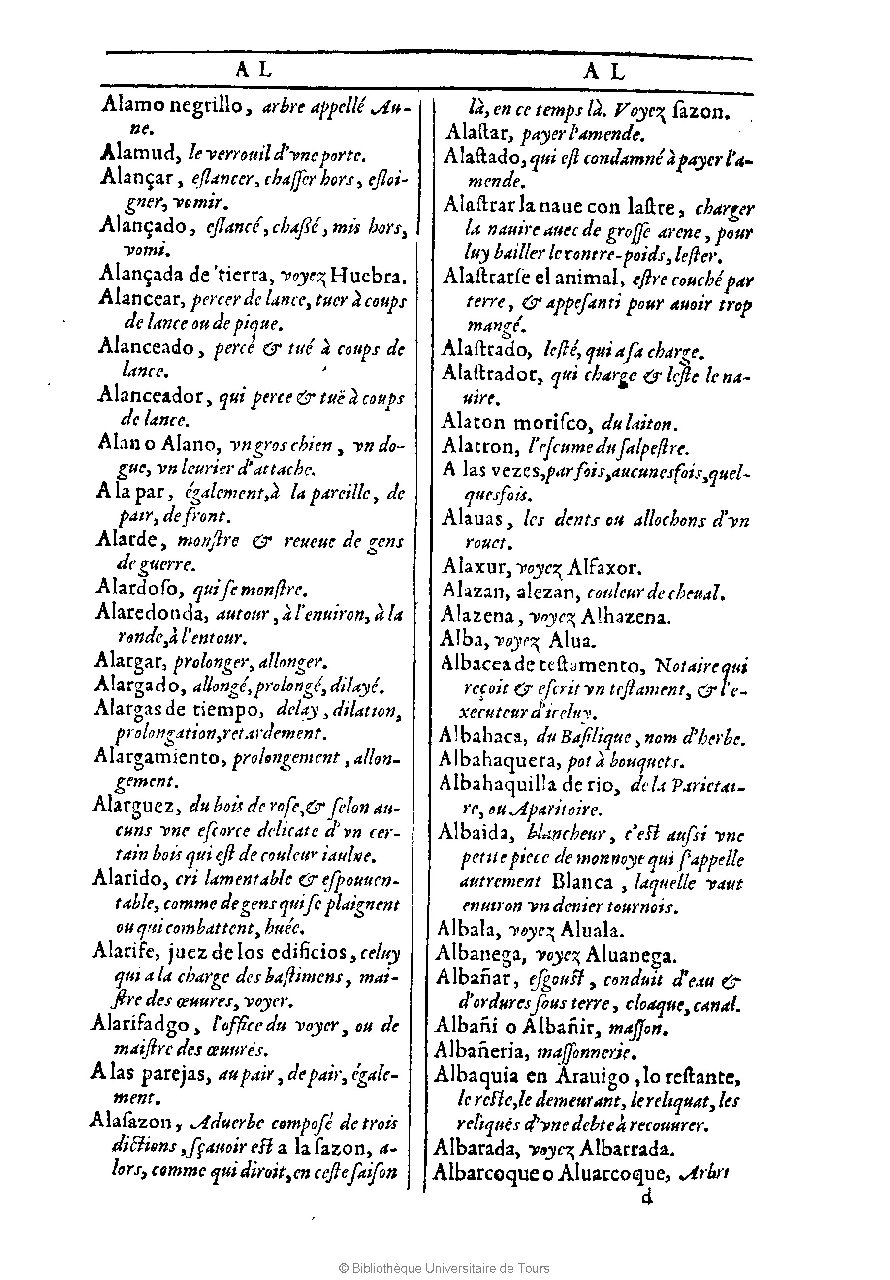 A L
Alamo negrillo, arbre appellé Au-
ne.
Alamud, le verrouil d'vne porte.
Alançar, eſlancer, chaſſer hors, eſloi-
gner, vomir.
Alançado, eſlancé, chaßé, mis hors,
vomi.
Alançada de tierra, voyez Huebra.
Alancear, percer de lance, tuer à coups
de lance ou de pique.
Alanceado, percé & tué à coups de
lance.
Alanceador, qui perce & tuë à coups
de lance.
Alan o Alano, vn gros chien, vn do-
gue, vn leurier d'attache.
A la par, également, à la pareille, de
pair, de front.
Alarde, monſtre & reueue de gens
de guerre.
Alardoſo, qui ſe monſtre.
Alaredonda, autour, à l'enuiron, à la
ronde, à l'entour.
Alargar, prolonger, allonger.
Alargado, allongé, prolongé, dilayé.
Alargas de tiempo, delay, dilation,
prolongation, retardement.
Alargamiento, prolongement, allon-
gement.
Alarguez, du bois de roſe, & ſelon au-
cuns vne eſcorce delicate d'vn cer-
tain bois qui eſt de couleur iaulne.
Alarido, cri lamentable & eſpouuen-
table, comme de gens qui ſe plaignent
ou qui combattent, huée.
Alarife, juez de los edificios, celuy
qui a la charge des baſtimens, mai-
ſtre des œuures, voyer.
Alarifadgo, l'office du voyer, ou de
maiſtre des œuures.
A las parejas, au pair, de pair, égale-
ment.
Alaſazon, Aduerbe compoſé de trois
dictions, ſçauoir eſt a la ſazon, a-
lors, comme qui diroit, en ceſte ſaiſon
A L
là, en ce temps là. Voyez ſazon.
Alaſtar, payer l'amende.
Alaſtado, qui eſt condamné à payer l'a-
mende.
Alaſtrar la naue con laſtre, charger
la nauire auec de groſſe arene, pour
luy bailler le contre-poids, leſter.
Alaſtrarſe el animal, eſtre couché par
terre, & appeſanti pour auoir trop
mangé.
Alaſtrado, leſté, qui a ſa charge.
Alaſtrador, qui charge & leſte le na-
uire.
Alaton moriſco, du laiton.
Alatron, l'eſcume du ſalpeſtre.
A las vezes, par fois, aucunesfois, quel-
quesfois.
Alauas, les dents ou allochons d'vn
rouet.
Alaxur, voyez Alfaxor.
Alazan, alezan, couleur de cheual.
Alazena, voyez Alhazena.
Alba, voyez Alua.
Albacea de teſtamento, Notaire qui
reçoit & eſcrit vn teſtament, & l'e-
xecuteur d'iceluy.
Albahaca, du Baſilique, nom d'herbe.
Albahaquera, pot à bouquets.
Albahaquilla de rio, de la Parietai-
re, ou Aparitoire.
Albaida, blancheur, c'eſt auſsi vne
petite piece de monnoye qui ſ'appelle
autrement Blanca, laquelle vaut
enuiron vn denier tournois.
Albala, voyez Aluala.
Albanega, voyez Aluanega.
Albañar, eſgouſt, conduit d'eau &
d'ordures ſous terre, cloaque, canal.
Albañi o Albañir, maſſon.
Albañeria, maſſonnerie.
Albaquia en Arauigo, lo reſtante,
le reſte, le demeurant, le reliquat, les
reliqués d'vne debte à recouurer.
Albarada, voyez Albarrada.
Albarcoque o Aluarcoque, Arbre
d
© Bibliothèque Universitaire de Tours